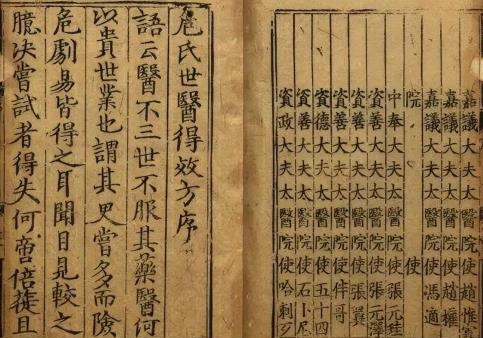 嘉議大夫太醫院使趙惟
嘉議大夫太醫院使趙權
嘉議大夫太醫院使馮適
院使
中奉大夫太醫院使張元珪
資善大夫太醫院使張元澤
資善大夫太醫院使張翼
資善大夫太醫院使伴哥
資德大夫太醫院使五十四
資善大夫太醫院使石卜尼
資政大夫太醫院使哈剌歹
危氏世醫得效方序
語云醫不三世不服其藥醫何
以貴世業也謂其更嘗多而險
危劇易皆得之耳聞目見較之
臆决嘗試者得失何啻倍蓰且